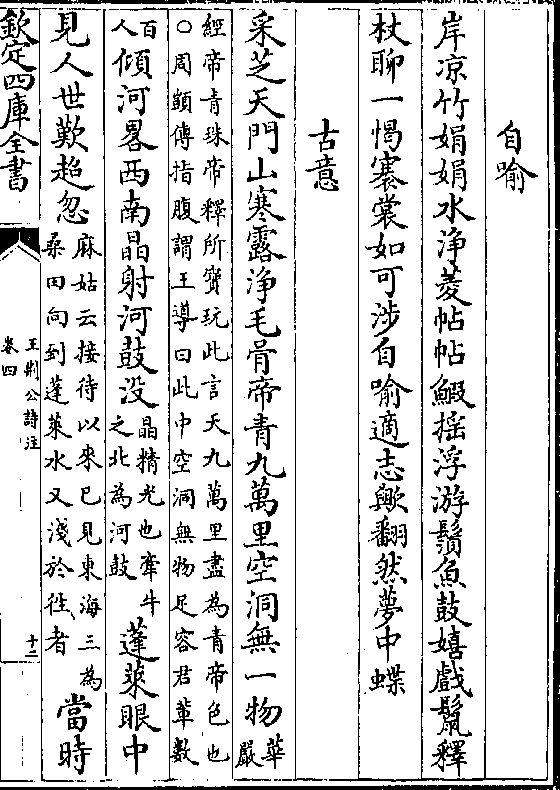 自喻
岸凉竹娟娟水净菱帖帖鰕摇浮游鬚魚鼓嬉戲鬛釋
杖聊一愒褰裳如可涉自喻適志歟翻然夢中蝶
古意
采芝天門山寒露净毛骨帝青九萬里空洞無一物華嚴
經帝青珠帝釋所寶玩此言天九萬里盡為青帝色也
○周顗傳指腹謂王導曰此中空洞無物足容君輩數
百人傾河畧西南晶射河鼓没晶精光也牽牛之北為河鼓蓬萊眼中
見人世歎超忽麻姑云接待以來已見東海三為桑田向到蓬萊水又淺於徃者當時
欽定四庫全書
王荆公詩注
卷四
十二